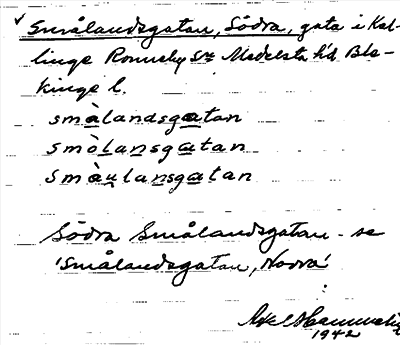 Smålandsgatan, Södra, gata i Kal-
linge Ronneby sn Medelsta hd Ble-
kinge l.
småländsgatan
smòlansgatan
smàulansgatan
Södra Smålandsgatan - se
'Smålandsgatan, Norra'
Axel
1942